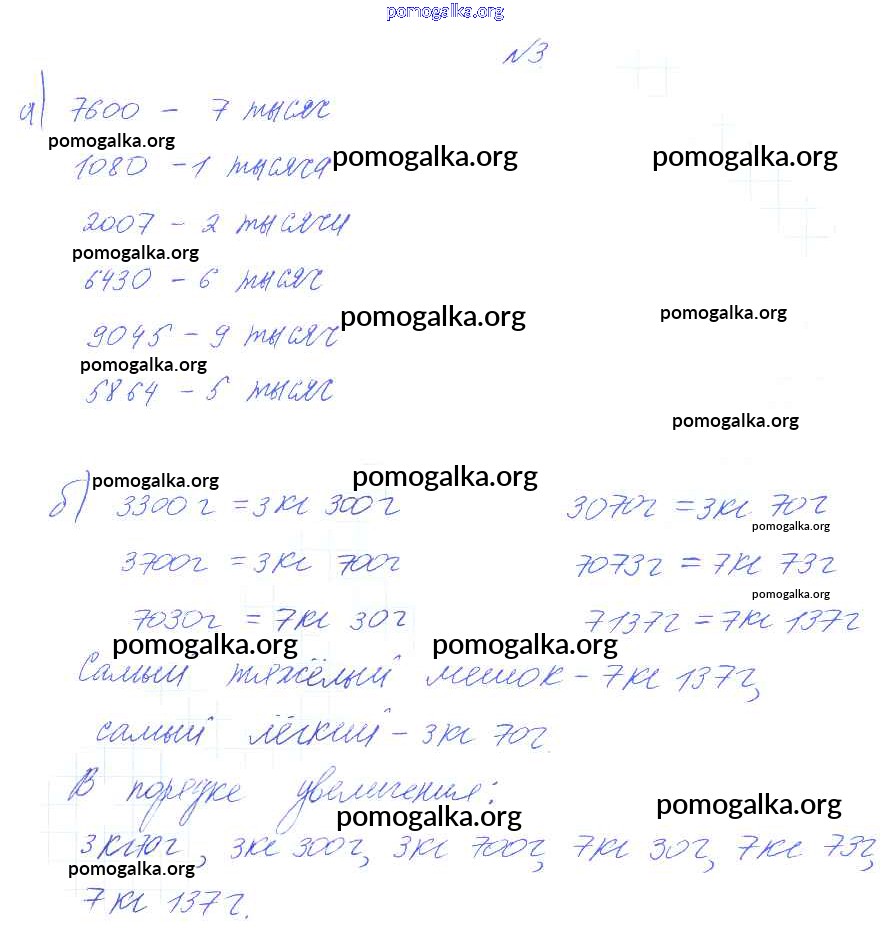 pomogalka.org
№3
а) 7600 - 7 тысяч
pomogalka.org
1080 - 1 тысяча
pomogalka.org
pomogalka.org
2007 - 2 тысячи
pomogalka.org
6430 - 6 тысяч
pomogalka.org
pomogalka.org
9045 - 9 тысяч
pomogalka.org
5864 - 5 тысяч
pomogalka.org
pomogalka.org
pomogalka.org
б) 3300 г = 3 кг 300 г
3070 г = 3 кг 70 г
pomogalka.org
3700 г = 3 кг 700 г
7073 г = 7 кг 73 г
pomogalka.org
7030 г = 7 кг 30 г
7137 г = 7 кг 137 г
pomogalka.org
pomogalka.org
Самый тяжёлый мешок - 7 кг 137 г,
самый лёгкий - 3 кг 70 г.
В порядке увеличения:
pomogalka.org
pomogalka.org
3 кг 70 г, 3 кг 300 г, 3 кг 700 г, 7 кг 30 г, 7 кг 73 г,
pomogalka.org
7 кг 137 г.